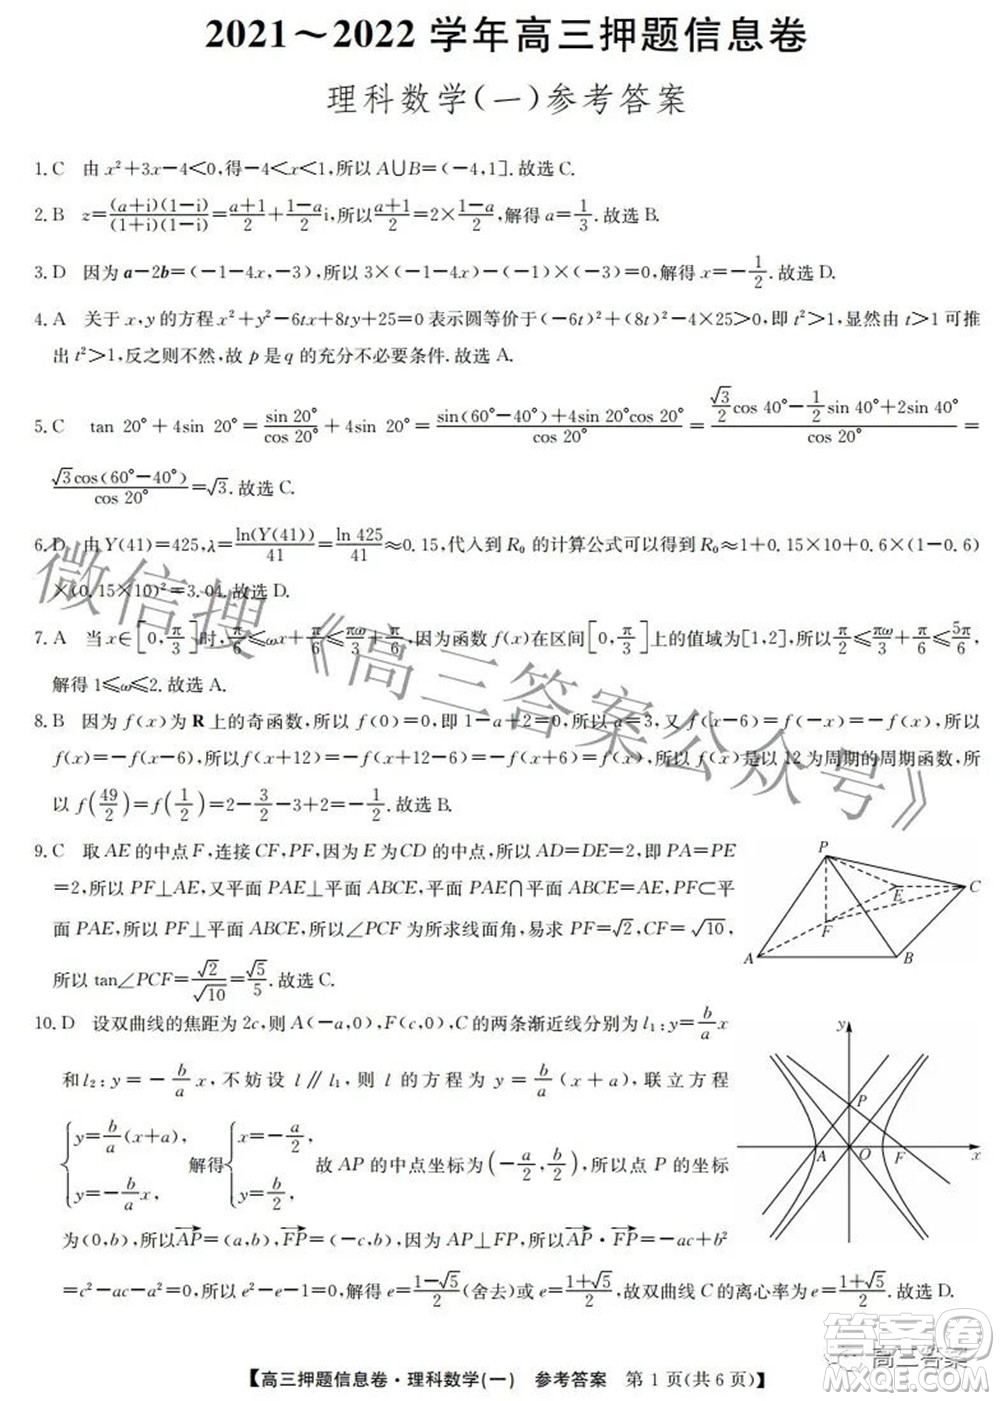 2021～2022 学年高三押题信息卷
理科数学(一)参考答案
1. C 由 x²+3x−4<0,得−4<x<1,所以 A∪B=(−4,1].故选 C.
2. B z=(a+i)(1−i)/(1+i)(1−i)=(a+1)/2+(1−a)/2 i,所以(a+1)/2=2×(1−a)/2,解得 a=1/3.故选 B.
3. D 因为 a−2b=(−1−4x,−3),所以 3×(−1−4x)−(−1)×(−3)=0,解得 x=−1/2.故选 D.
4. A 关于 x,y 的方程 x²+y²−6tx+8ty+25=0 表示圆等价于(−6t)²+(8t)²−4×25>0,即 t²>1,显然由 t>1 可推
出 t²>1,反之则不然,故 p 是 q 的充分不必要条件.故选 A.
5. C tan 20°+4sin 20°=sin 20°/cos 20°+4sin 20°=(sin(60°−40°)+4sin 20°cos 20°)/cos 20°=(√3/2 cos 40°−1/2 sin 40°+2sin 40°)/cos 20°=
√3cos(60°−40°)/cos 20°=√3.故选 C.
6. D 由 Y(41)=425,λ=ln(Y(41))/41=ln 425/41≈0.15,代入到 R₀ 的计算公式可以得到 R₀≈1+0.15×10+0.6×(1−0.6)
×(0.15×10)²=3.04.故选 D.
7. A 当 x∈[0,π/3]时,π/6≤ωx+π/6≤πω/3+π/6,因为函数 f(x)在区间[0,π/3]上的值域为[1,2],所以π/2≤πω/3+π/6≤5π/6,
解得 1≤ω≤2.故选 A.
8. B 因为 f(x)为 R 上的奇函数,所以 f(0)=0,即 1−a+2=0,所以 a=3,又 f(x−6)=f(−x)=−f(x),所以
f(x)=−f(x−6),所以 f(x+12)=−f(x+12−6)=−f(x+6)=f(x),所以 f(x)是以 12 为周期的周期函数,所
以 f(49/2)=f(1/2)=2−3/2−3+2=−1/2.故选 B.
9. C 取 AE 的中点 F,连接 CF,PF,因为 E 为CD 的中点,所以 AD=DE=2,即 PA=PE
=2,所以 PF⊥AE,又平面 PAE⊥平面 ABCE,平面 PAE∩平面 ABCE=AE,PF⊂平
面 PAE,所以 PF⊥平面 ABCE,所以∠PCF 为所求线面角,易求 PF=√2,CF=√10,
所以 tan∠PCF=√2/√10=√5/5.故选 C.
P
E
C
F
A
B
10. D 设双曲线的焦距为 2c,则 A(−a,0),F(c,0),C 的两条渐近线分别为 l₁:y=b/a x
和l₂:y=−b/a x,不妨设 l∥l₁,则 l 的方程为 y=b/a (x+a),联立方程
{y=b/a(x+a), y=−b/a x, 解得{x=−a/2, y=b/2, 故 AP 的中点坐标为(−a/2,b/2),所以点 P 的坐标
为(0,b),所以AP=(a,b),FP=(−c,b),因为 AP⊥FP,所以AP·FP=−ac+b²
=c²−ac−a²=0,所以 e²−e−1=0,解得 e=(1−√5)/2(舍去)或 e=(1+√5)/2,故双曲线 C 的离心率为 e=(1+√5)/2.故选 D.
y
P
A
O
F
x
【高三押题信息卷·理科数学(一) 参考答案 第 1 页(共 6 页)】
微信搜《高三答案公众号》
高三答案
答案圈
MXQE.COM